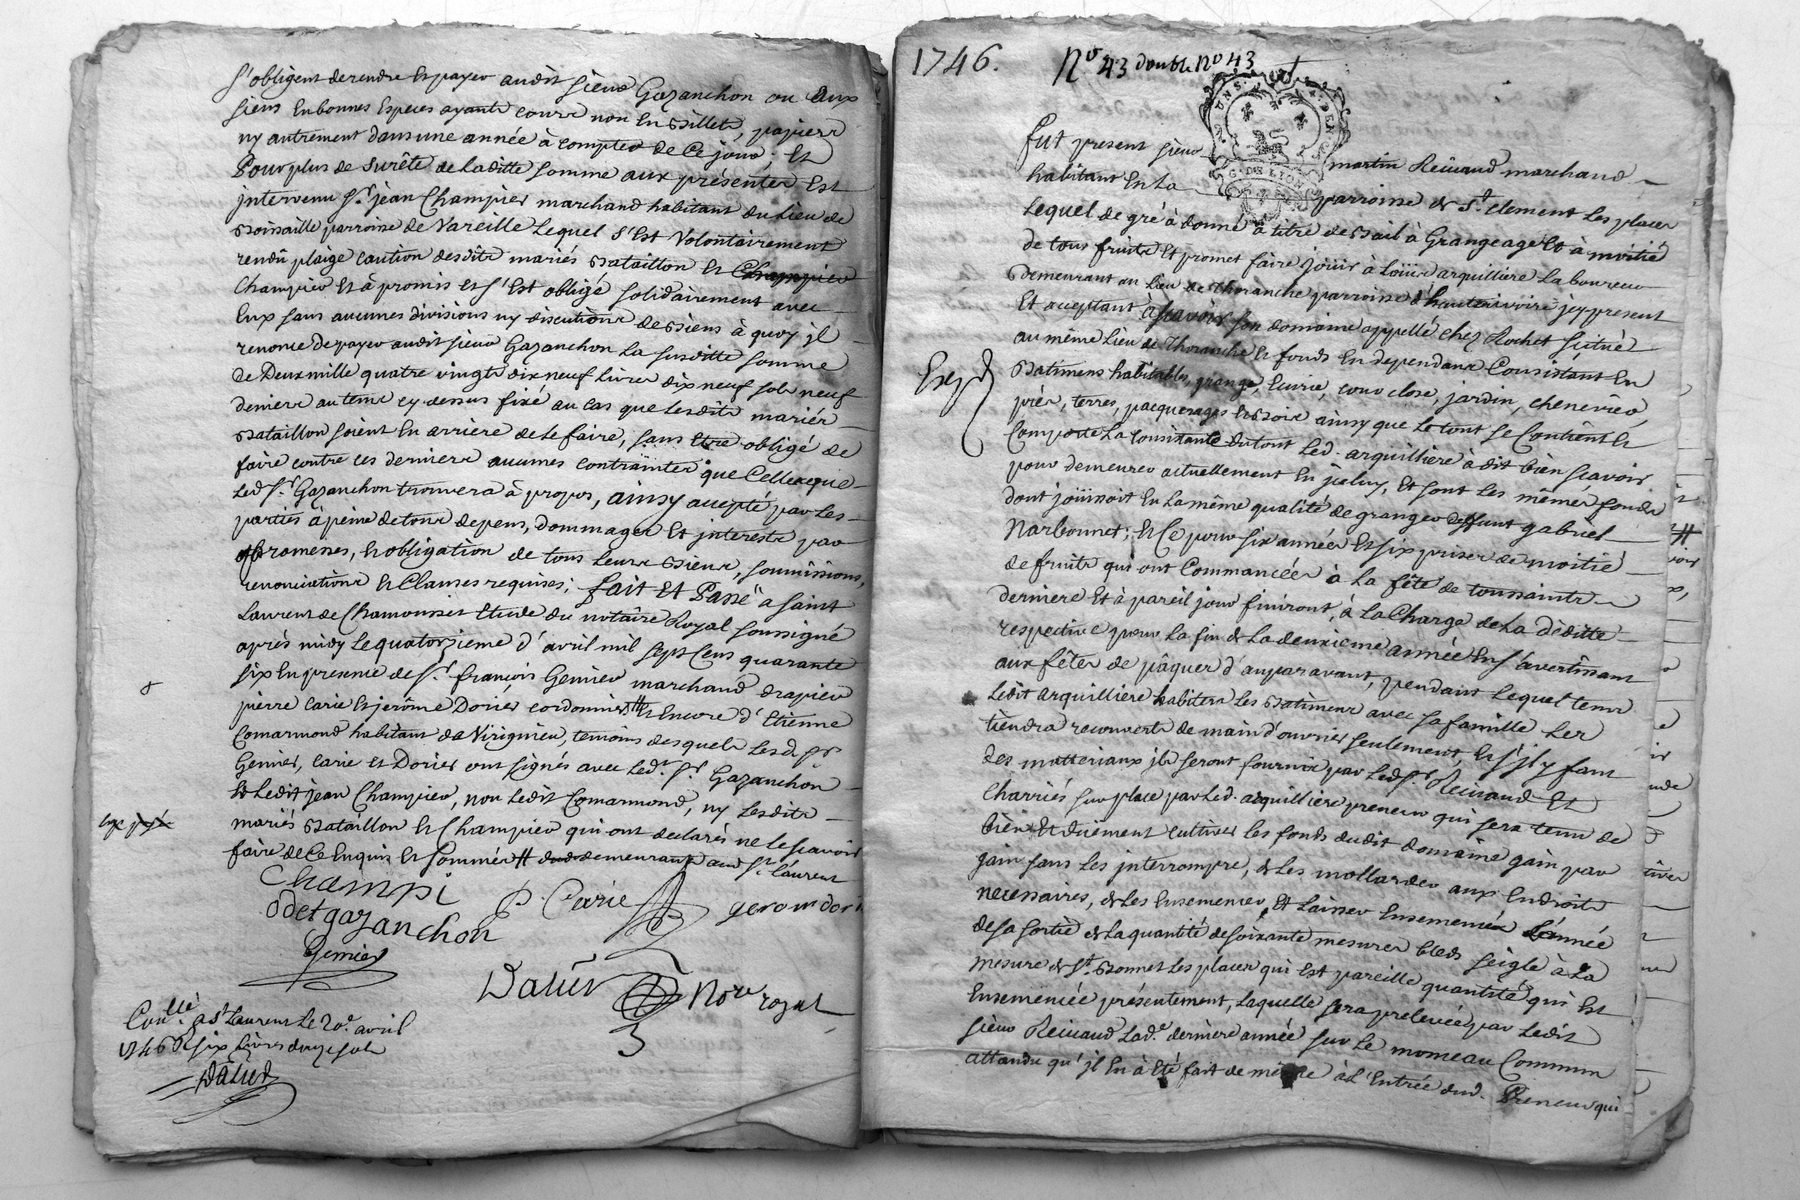 s'obligent de rendre et payer audit sieur Gazanchon ou aux
siens en bonnes especes ayants cours non en billets, papiers
ny autrement dans une année à compter de ce jour; et
pour plus de sureté de laditte somme aux présentes est
intervenu sr. jean Champier marchand habitant du lieu de
parroisse de Vareille lequel s'est volontairement
rendû plaige caution desdits mariés Bataillon et Champier
Champier et à promis et s'est obligé solidairement avec
eux sans aucunes divisions ny discutions de biens à quoy il
renonce de payer audit sieur Gazanchon la susditte somme
de Deux mille quatre vingts dix neuf livres dix neuf sols neuf
deniers au terme cy dessus fixé au cas que lesdits mariés
Bataillon soient en arriere de le faire, sans etre obligé de
faire contre ces derniers aucunes contraintes que celles que
led. sr. Gazanchon trouvera à propos, ainsy accepté par les
parties à peine de tous depens, dommages et interests par
promesses, et obligation de tous leurs biens, soumissions,
renonciations et clauses requises; fait et Passé a saint
Laurent de Chamousset etude du notaire Royal soussigné
après midy le quatorzieme d'avril mil sept cens quarante
six en presence de sr. françois Genier marchand drapier
pierre Carie et jerôme Dorier cordonniers # et encore d'Etienne
Comarmond habitant de Virigneu, temoins desquels lesd.
Genier, Carie et Dorier ont signés avec led. sr. Gazanchon
et ledit jean Champier, non ledit Comarmond, ny lesdits
mariés Bataillon et Champier qui ont declarés ne le scavoir
faire de ce enquis et sommés # demeurants aud. st. Laurent
Champi
P. Carie
gerom dori
Odet gazanchon
Genier
Dalier
Nore royal
Conllé a st Laurent le 20e. avril
1746 R six livres douze sols
Dalier
1746.
No 43 double No 43
G. DE LION
fut present sieur martin Reiuaud marchand
habitant en la parroisse de st. clement les places
lequel de gré à donné à titre de Bail à Grangeage et à moitié
de tous fruits et promet faire joüir à Loüis arquilliere laboureur
demeurant au lieu de Thoranche parroisse d'hauterivoire icy present
et acceptant à scavoir son domaine appellé chez Rochet scitué
au même lieu de Thoranche et fonds en dependans consistant en
Batimens habitables, grange, Ecurie, cour close, jardin, chenevier,
prés, terres, pacquerages et Bois ainsy que le tout se contient et
comporte la consistance du tout led. arquilliere à dit bien scavoir
pour demeurer actuellement en iceluy, et sont les mêmes fonds
dont joüissoit en la même qualité de granger deffunt gabriel
Narbonnet; et ce pour six années et six prises de moitié
de fruits qui ont commancées à la fête de toussaints
derniere et à pareil jour finiront, à la charge de la déditte
respective pour la fin de la deuxieme année en s'avertissant
aux fêtes de pâques d'auparavant, pendant lequel tems
ledit arquilliere habitera les Batimens avec sa famille les
tiendra recouverts de main d'ouvrier seulement, et s'il y faut
des matteriaux ils seront fournis par led. sr. Reiuaud et
charriés sur place par led. arquilliere preneur qui sera tenu de
bien et düement cultiver les fonds dudit domaine gain par
gain sans les interrompre, de les mollarder aux endroits
necessaires, de les ensemencer, et laisser ensemencé l'année
de sa sortie de la quantité de soixante mesures bled seigle à la
mesure de st. Bonnet les places qui est pareille quantité qui est
ensemencée présentement, laquelle sera prelevée par ledit
sieur Reiuaud lad. derniere année sur le monceau commun
attandu qu'il en à été fait de même à l'entrée dud. Preneur qui